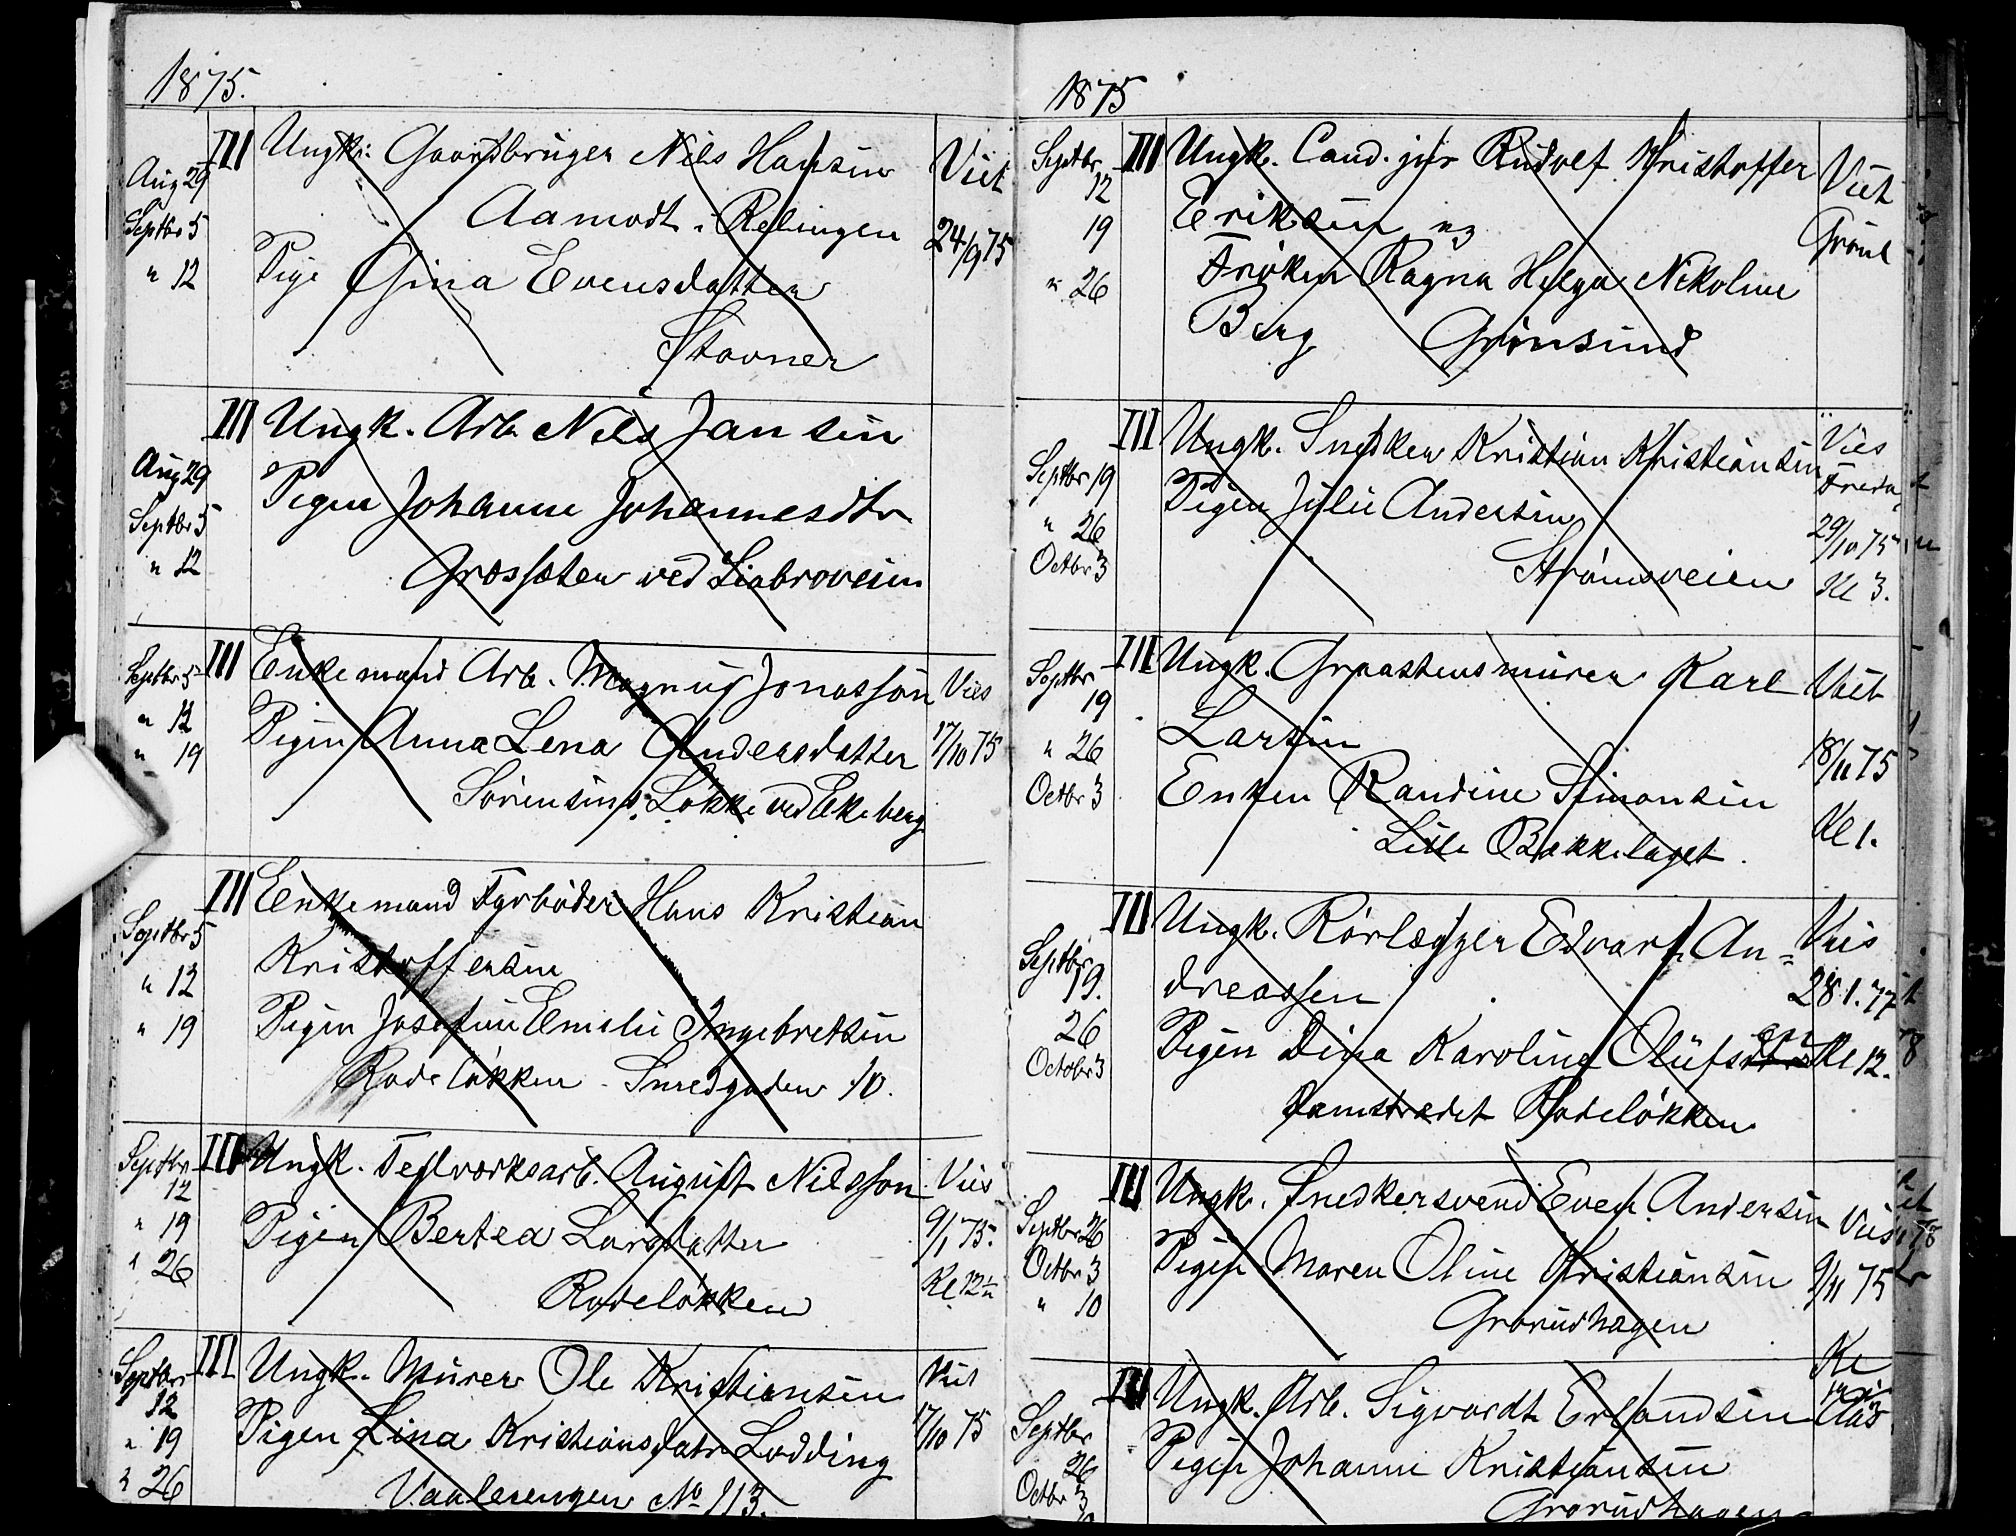 1875.
III Ungk: Gaardbruger Nils Hansen Viet
Aug 29
Septbr 5 Aamodt i Relingen 24/9 75
" 12 Pige Gina Evensdatter
Stovner
III Ungk. Arb. Nils Jansen
Aug 29 Pigen Johanne Johannesdtr
Septbr 5
" 12 Græssæter ved Liabroveien
Septbr 5 III Enkemand Arb. Magnus Jonasson Vies
" 12 Pigen Anna Lena Andersdatter 17/10 75
" 19 Sörensens Lökke ved Ekeberg
III Enkemand Fyrböder Hans Kristian
Septbr 5 Kristoffersen
" 12
" 19 Pigen Josefine Emilie Ingebretsen
Rodelökken Smedgaden 10.
Septbr III Ungk. Teglværksarb. August Nilsson Vies
12
" 19 Pigen Bertea Larsdatter
" 26 Rodelökken Kl 12½
Septbr III Ungk. Murer Ole Kristiansen Viet
12
" 19 Pigen Lina Kristiansdatr Lodding 17/10 75
" 26 Vaalerengen No 113.
1875
Septbr III Ungk. Cand. jur Rudolf Kristoffer Viet
12
19 Eriksen og Grönl
" 26 Fröken Ragna Helga Nikoline
Berg Grönsund
III Ungk. Snedker Kristian Kristiansen Vies
Septbr 19 Pigen Julie Andersen Freda
" 26 29/10 75
Octbr 3 Strömsveien Kl 3.
Septbr III Ungk. Graastensmurer Karl Viet
19 Larsen
" 26 18/11 75
Octbr 3 Enken Randine Simonsen
Lille Bækkelaget. Kl 1.
III Ungk. Rörlægger Edvart An= Vies
Septbr
19. dreassen 28 1. 77
26 Pigen Dina Karoline Olufsen Kl 12.
Octobr 3
Damstrædet Rodelökken
III Ungk. Snedkersvend Even Andersen Vies
Septbr 26
Octbr 3 Pigen Maren Oline Kristiansen 9/11 75
" 10 Grorudhagen
Kl
III Ungk. Arb. Sigvardt Erlandsen
Septbr
26 Pigen Johanne Kristiansen
Octbr 3 Grorudhagen